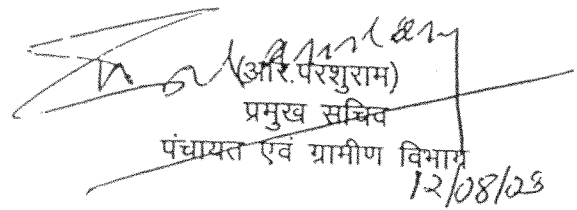 (आर.परशुराम)
प्रमुख सचिव
पंचायत एवं ग्रामीण विभाग
12/08/03